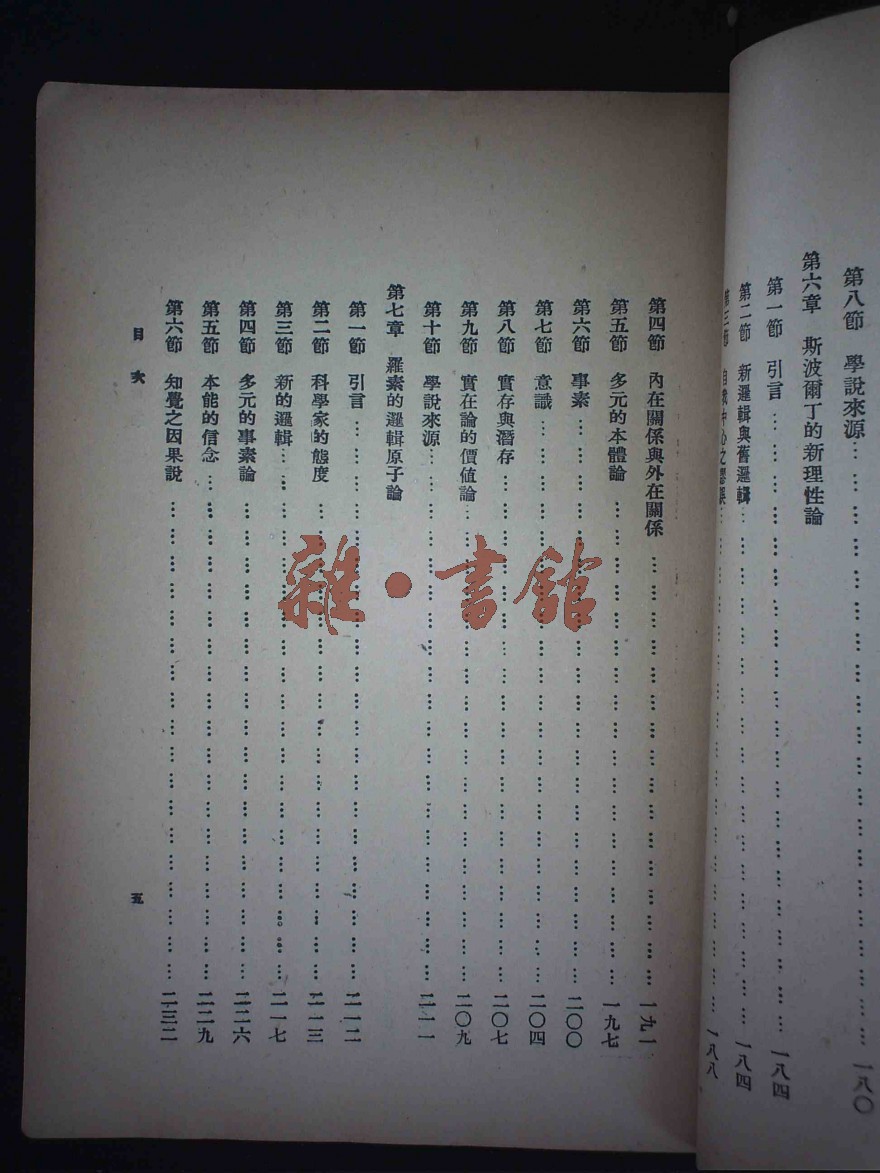 第八節　學說來源……一八〇
第六章　斯波爾丁的新理性論
第一節　引言……一八四
第二節　新邏輯與舊邏輯……一八四
第三節　自我中心之謬誤……一八八
第四節　內在關係與外在關係……一九一
第五節　多元的本體論……一九七
第六節　事素……二〇〇
第七節　意識……二〇四
第八節　實存與潛存……二〇七
第九節　實在論的價值論……二〇九
第十節　學說來源……二一一
第七章　羅素的邏輯原子論
第一節　引言……二一二
第二節　科學家的態度……二一三
第三節　新的邏輯……二一七
第四節　多元的事素論……二二六
第五節　本能的信念……二二九
第六節　知覺之因果說……二三二
目次
五
雜·書館